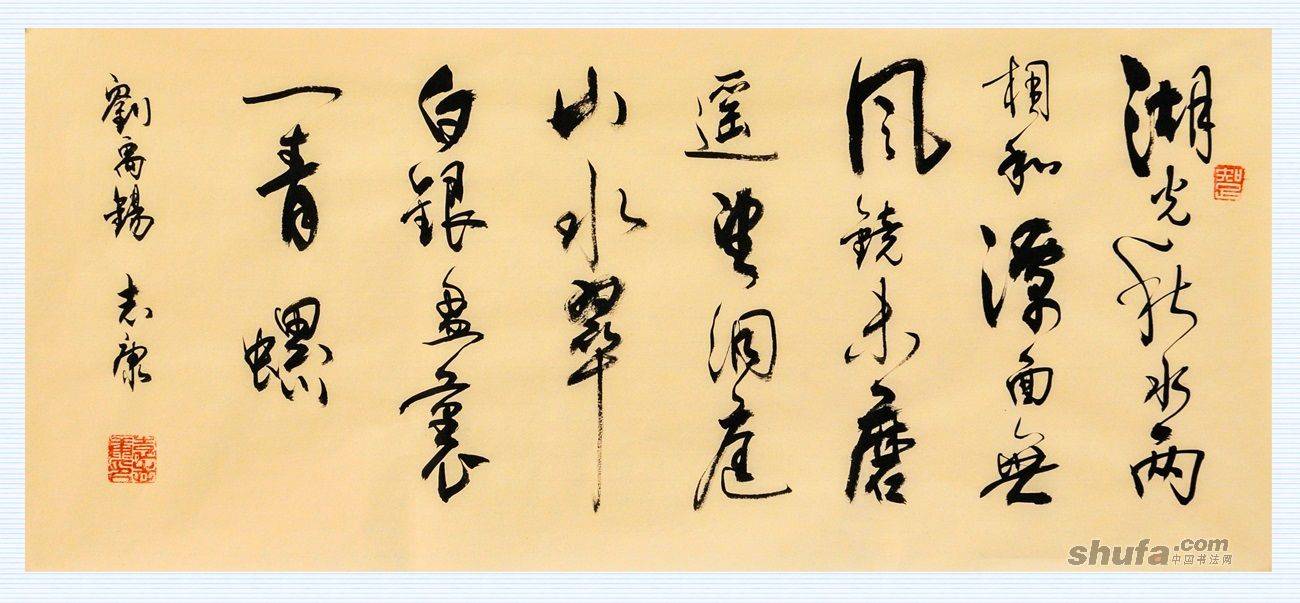 湖光秋水两
相和潭面無
风鏡未磨
遥望洞庭
山水翠
白銀盘裏
一青螺
劉禹錫 志康
知足
shufa.com
中国书法网